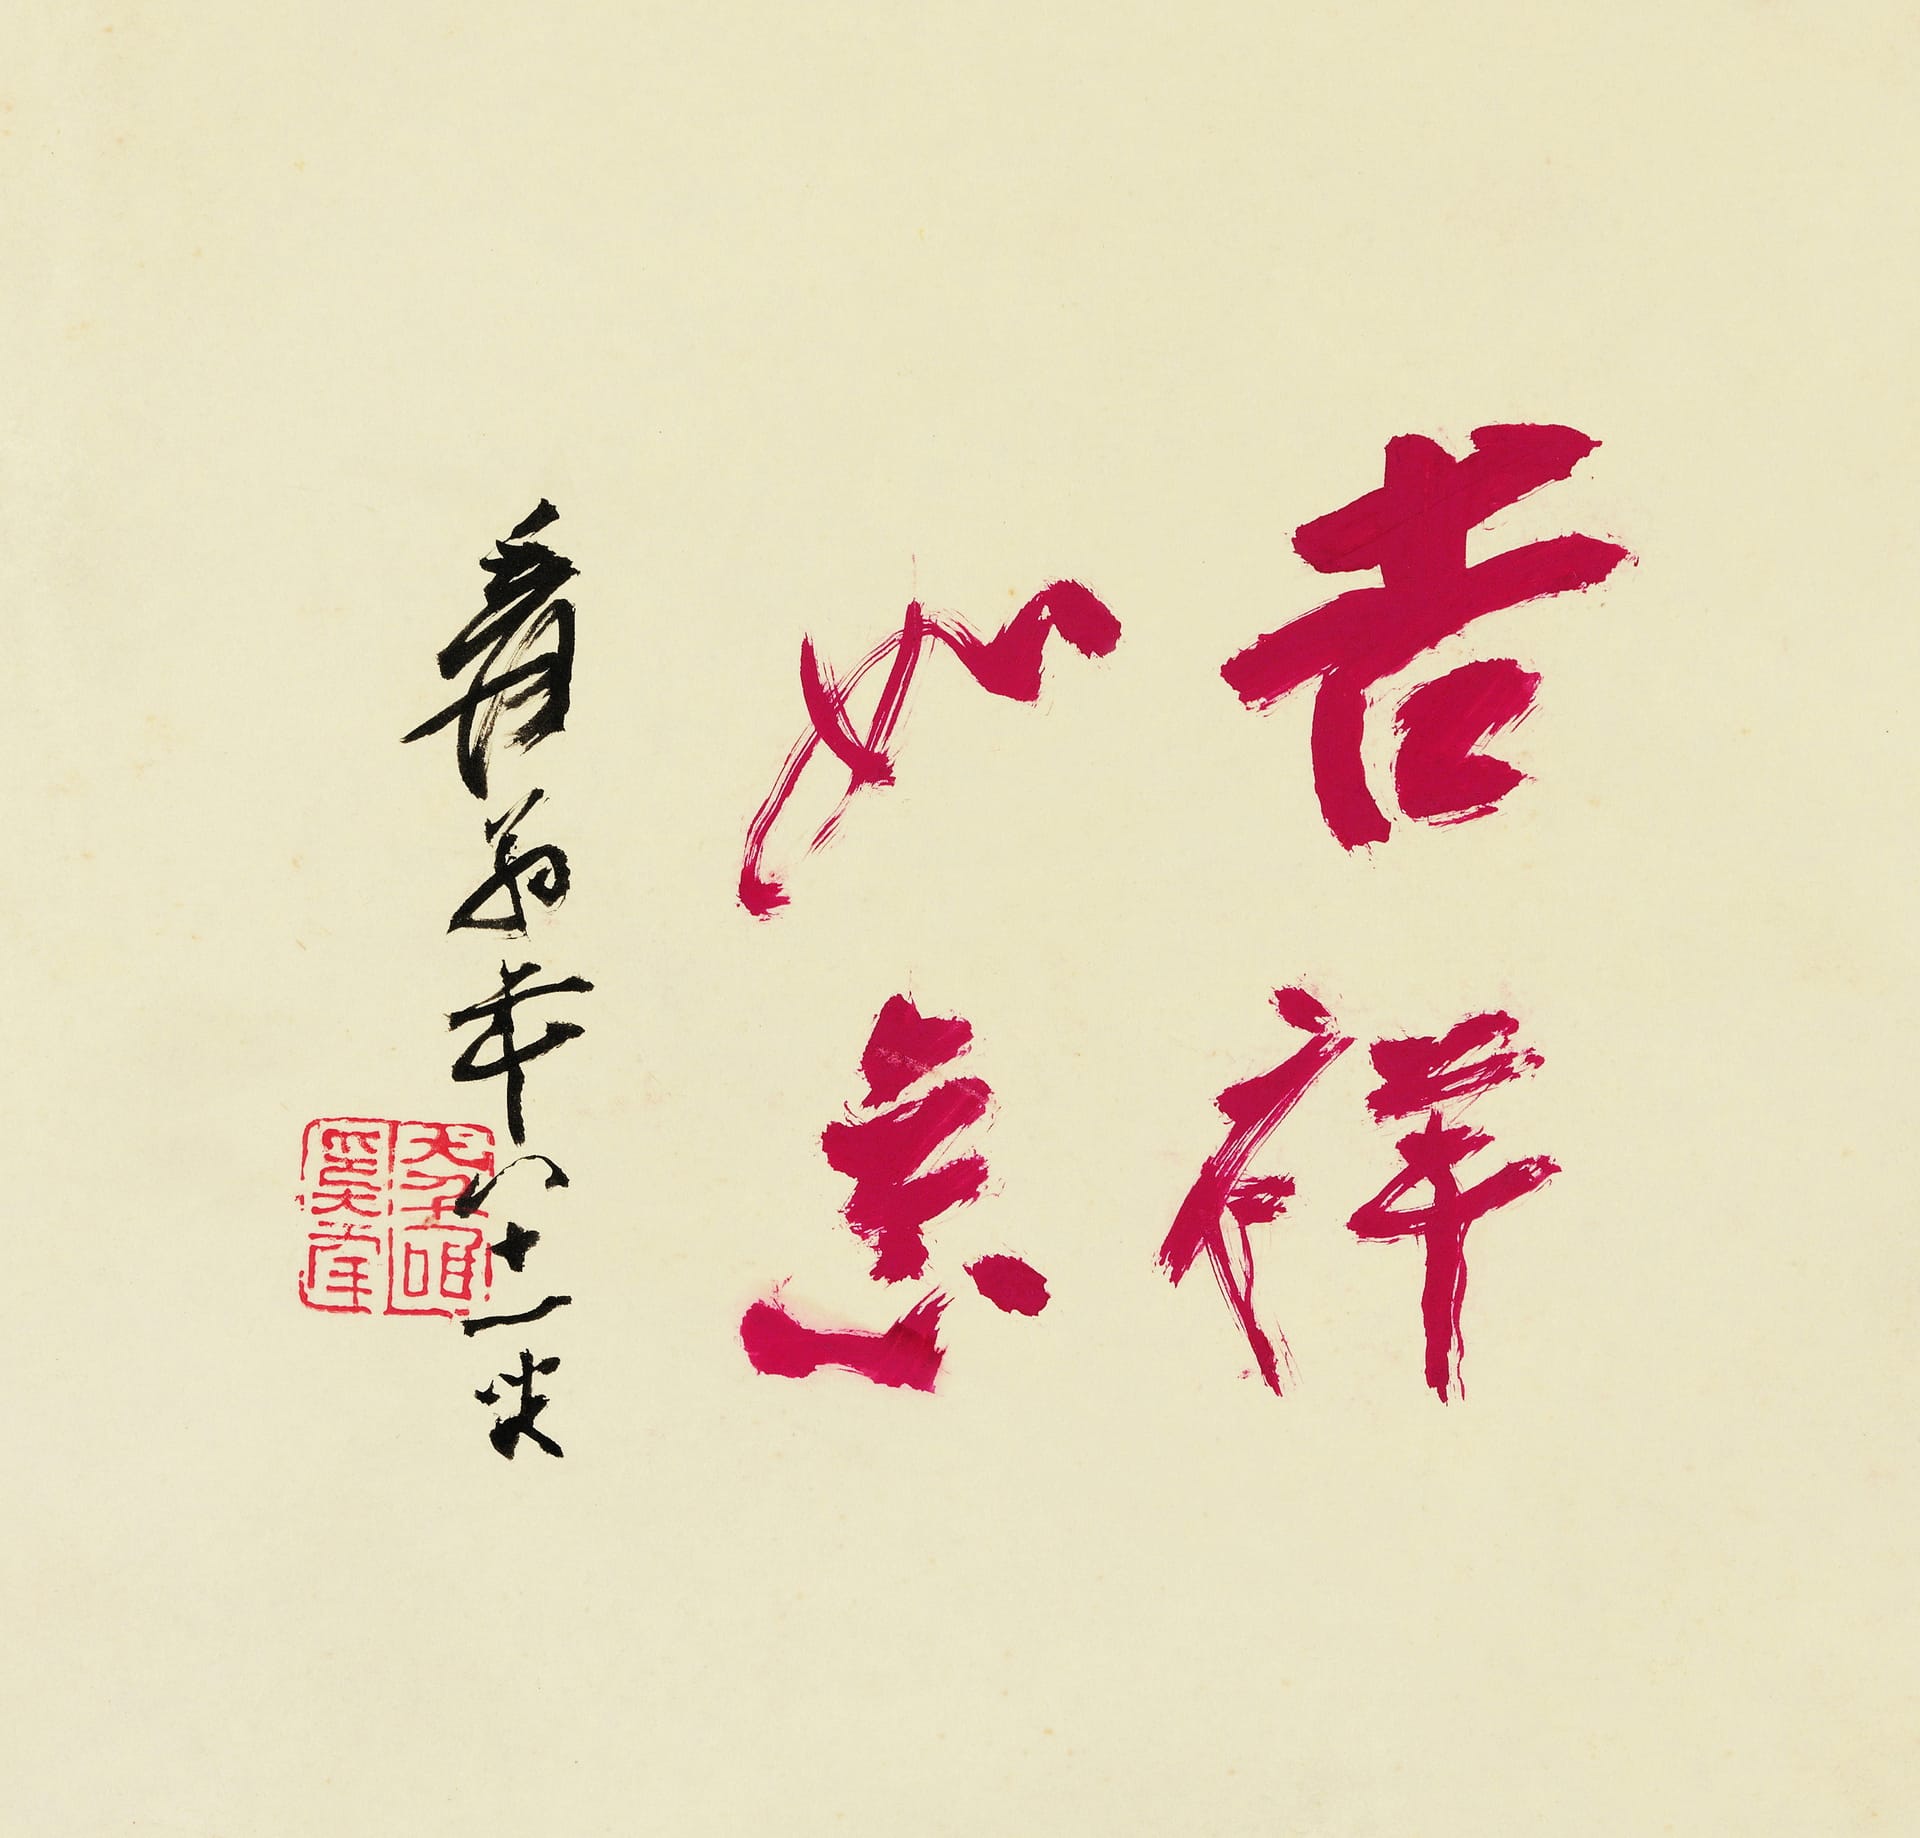 吉祥
如意
爰翁年八十一叟